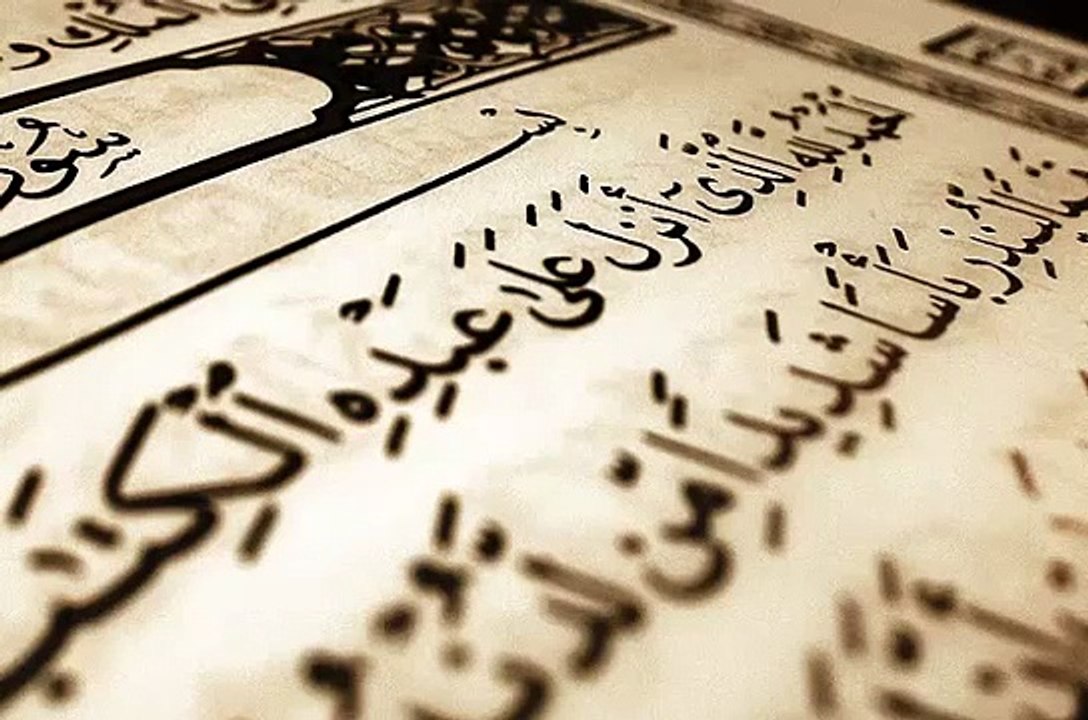 سُورَة
بِسْ
الْحَمْدُ لِلَّهِ الَّذِىٓ أَنزَلَ عَلَىٰ عَبْدِهِ الْكِتَٰبَ
لِّيُنذِرَ بَأْسًا شَدِيدًا مِّن لَّدُنْهُ